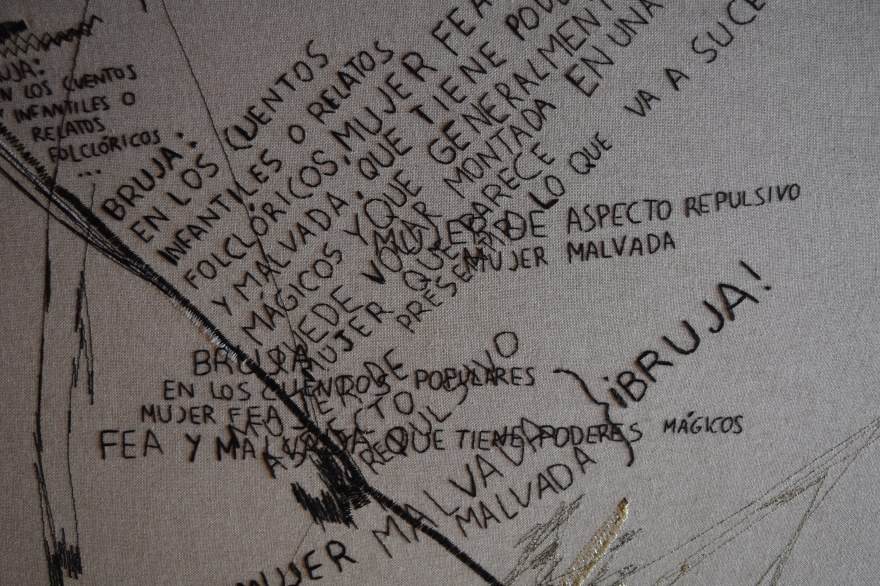 BRUJA:
EN LOS CUENTOS
INFANTILES O
RELATOS
FOLCLÓRICOS
...
BRUJA:
EN LOS CUENTOS
INFANTILES O RELATOS
FOLCLÓRICOS, MUJER FEA
Y MALVADA, QUE TIENE
MÁGICOS Y QUE GENERALMENT
PUEDE VOLAR MONTADA EN UNA
MUJER QUE PARECE
PRESENTIR LO QUE VA A SUCE
MUJER DE ASPECTO REPULSIVO
MUJER MALVADA
BRUJA
EN LOS CUENTOS POPULARES
MUJER FEA
FEA Y MALVADA QUE TIENE PODERES MÁGICOS
¡BRUJA!
MUJER DE
ASPECTO
REPULSIVO
MUJER MALVADA
MALVADA